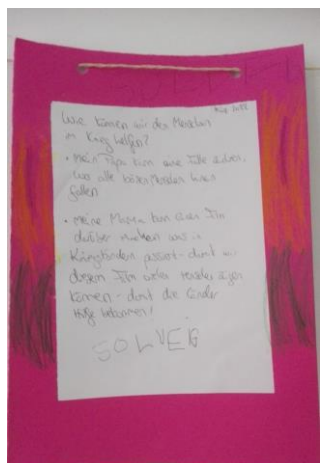 Wie können wir den Menschen
im Krieg helfen?
• Mein Papa kann eine Falle
wo alle bösen Menschen
fallen
• Meine Mama kann einen Film
darüber machen was in
Kriegsländern passiert - damit mit
diesem Film viele
können - damit die Länder
Hilfe bekommen!
SOLVEIG